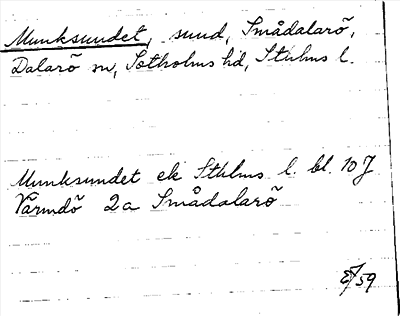 Munksundet, sund, Smådalarö,
Dalarö sn, Sotholms hd, Sthlms l.
Munksundet ek Sthlms l. bl. 10 J
Värmdö 2a Smådalarö
/59